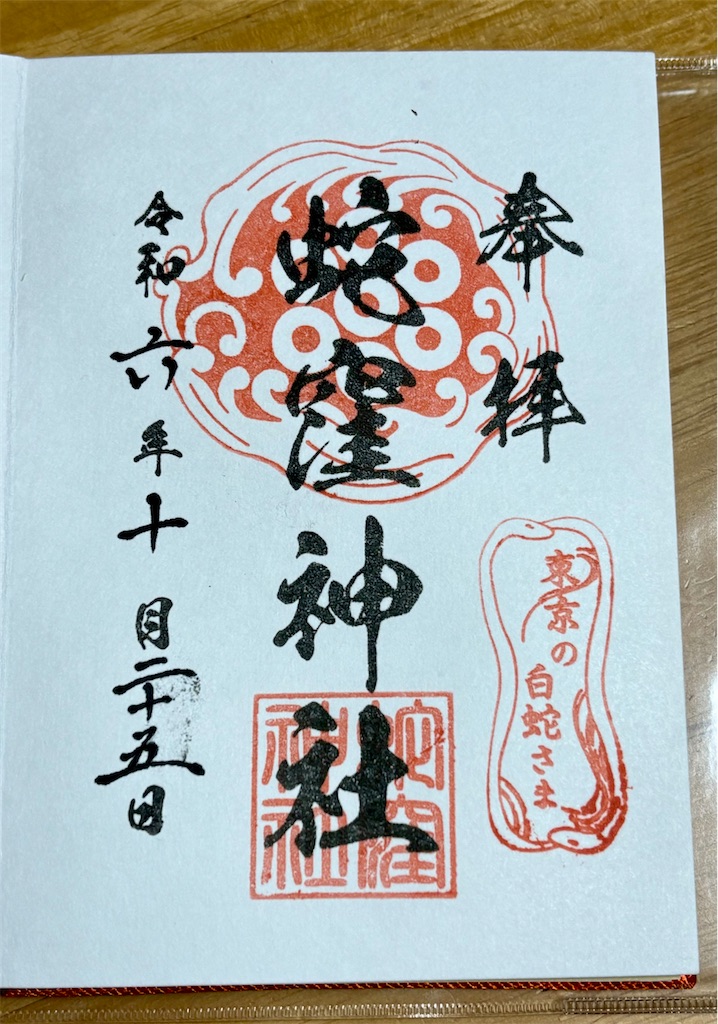 奉拝
東京の
白蛇さま
蛇窪神社
蛇窪
神社
令和六年十月二十五日